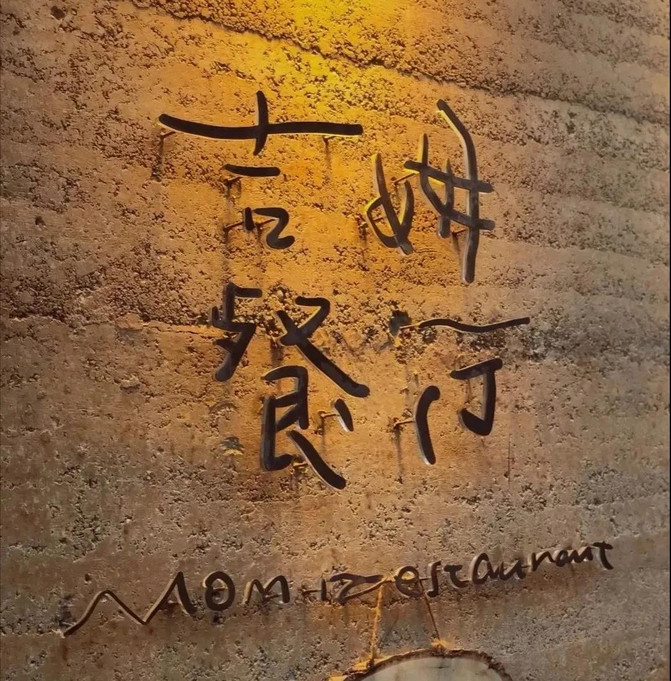 吉姆
餐厅
MOM Restaurant